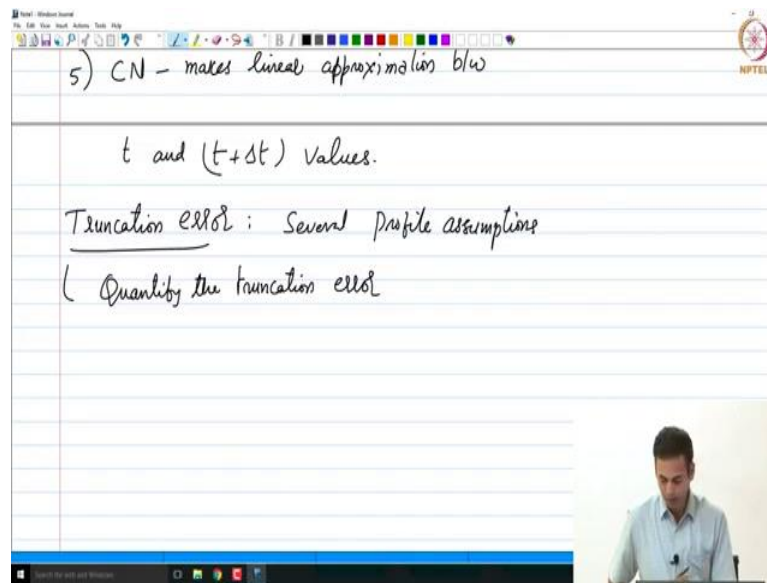 Note1 - Windows Journal
File Edit View Insert Actions Tools Help
B I
NPTEL
5) CN - makes linear approximation b/w
t and (t+Δt) values.
Truncation error : Several profile assumptions
( Quantify the truncation error
Search the web and Windows